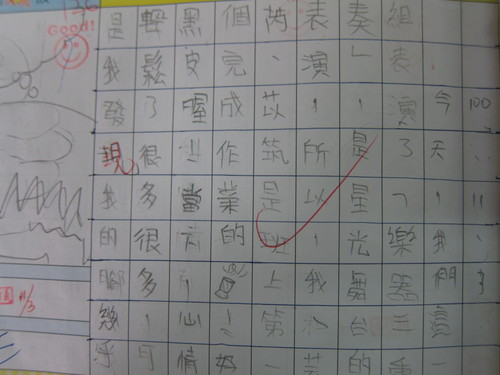 100、11、3
今天，我們這
組表演了「樂器三重
奏」，是星光舞台的
表演，所以，我、芸
芮、苡筑是班上第一
個完成作業的！好
黑皮喔！當，心情
輕鬆了很多很多，可
是我發現我的腦幾乎
Good!
11/3